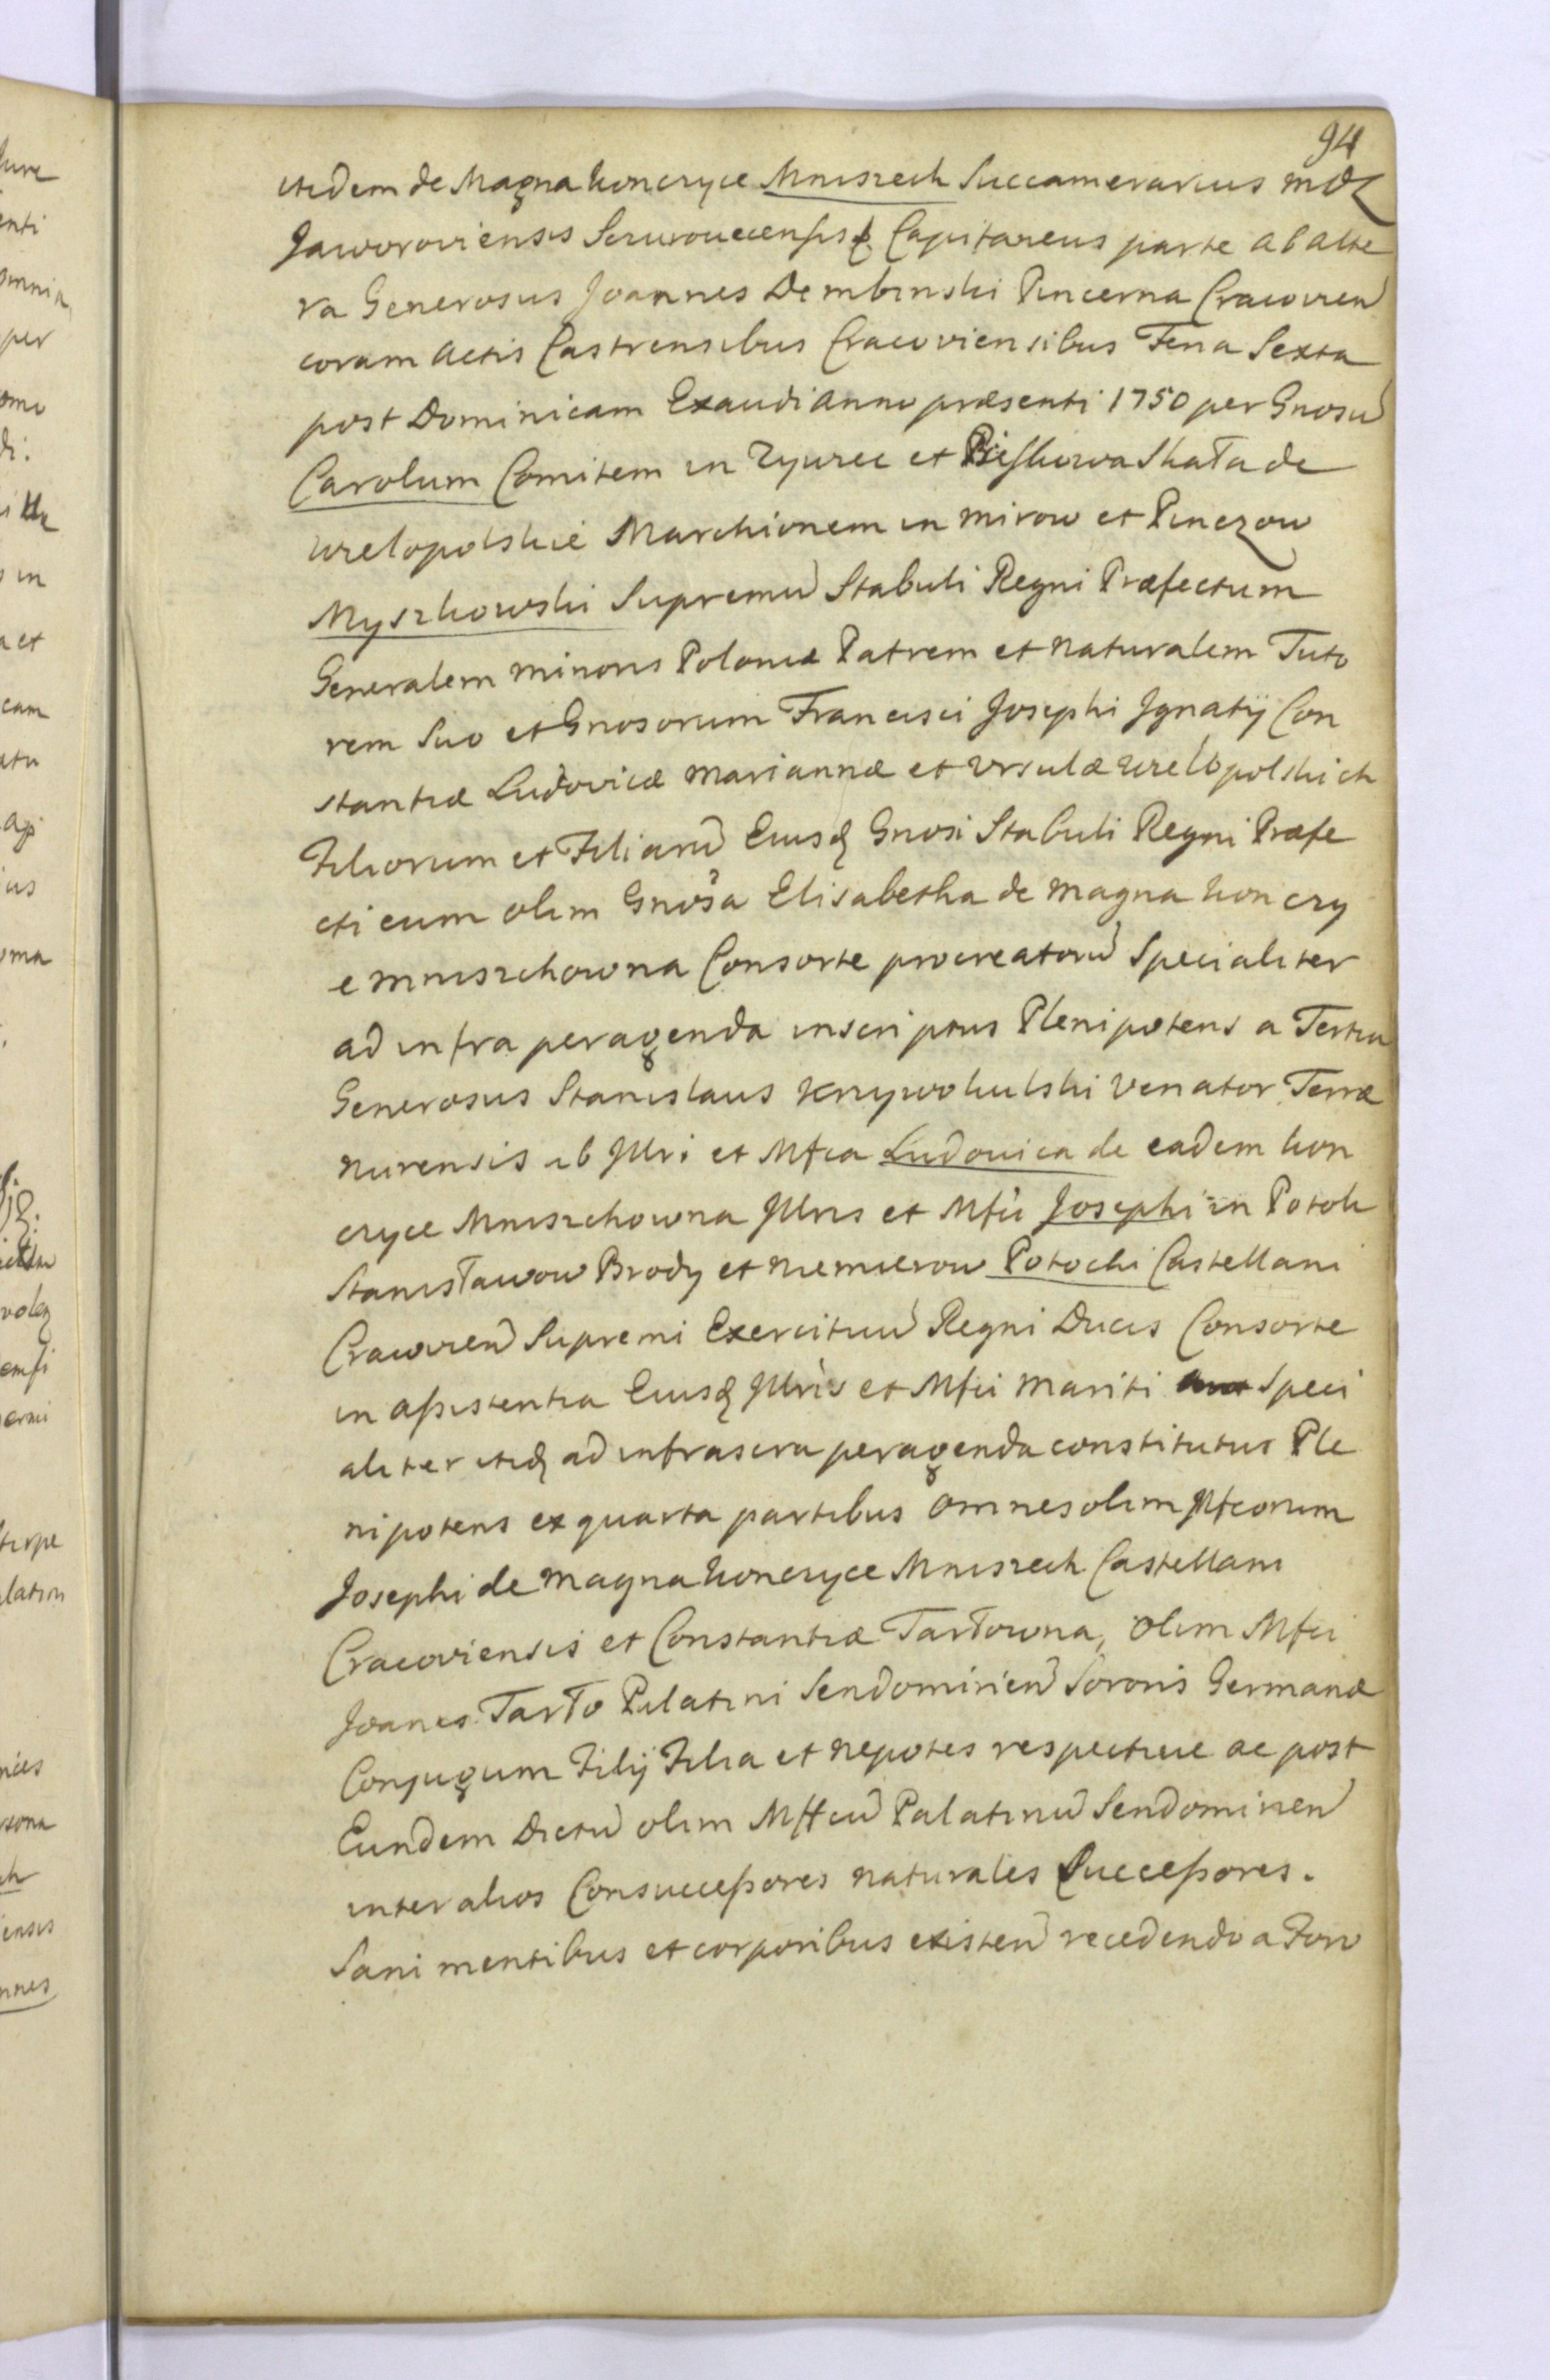 94
itidem de Magna Konczyce Mniszech Succamerarius MDL
Jaworoviensis Sczurowecensisq Capitaneus parte ab alte
ra Generosus Joannes Dembinski Pincerna Cracovien
coram Actis Castrensibus Cracoviensibus Feria Sexta
post Dominicam Exaudi Anno præsenti 1750 per Gnosu
Carolum Comitem in Zywiec et Pieskowa Skała de
Wielopolskie Marchionem in Mirow et Pinczow
Myszkowski Supremu Stabuli Regni Præfectum
Generalem minoris Poloniæ Patrem et naturalem Tuto
rem Suo et Gnosorum Francisci Josephi Ignatij Con
stantiæ Ludovicæ Mariannæ et Ursulæ Wielopolskich
Filiorum et Filiaru Eiusq Gnosi Stabuli Regni Præfe
cti cum olim Gnosa Elisabetha de Magna Konczy
e Mniszchowna Consorte procreatoru Specialiter
ad infra peragenda inscriptus Plenipotens a Tertia
Generosus Stanislaus Krzywokulski Venator Terræ
Nurensis ab Jllri et Mfca Ludovica de eadem Kon
czyce Mniszchowna Jllris et Mfci Josephi in Potok
Stanisławow Brody et Niemierow Potocki Castellani
Cracovien Supremi Exercituu Regni Ducis Consorte
in assistentia Eiusq Jllris et Mfci Mariti Speci
aliter itidq ad infrascra peragenda constitutus Ple
nipotens ex quarta partibus omnes olim Mfcorum
Josephi de Magna Konczyce Mniszech Castellani
Cracoviensis et Constantiæ Tarłowna, olim Mfci
Joanes Tarło Palatini Sendomirien Sororis Germanæ
Conjugum Filij Filia et nepotes respective ac post
Eundem Dictu olim Mffcu Palatinu Sendomirien
inter alios Consuccessores naturales Successores.
Sani mentibus et corporibus existen recedendo a Foro